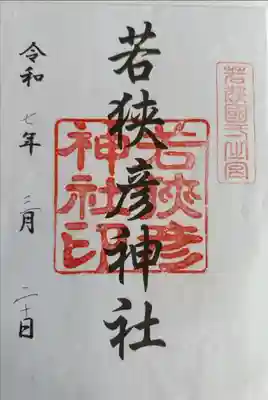 若狭國一之宮
若狭彦神社
若狭彦
神社印
令和七年三月二十日